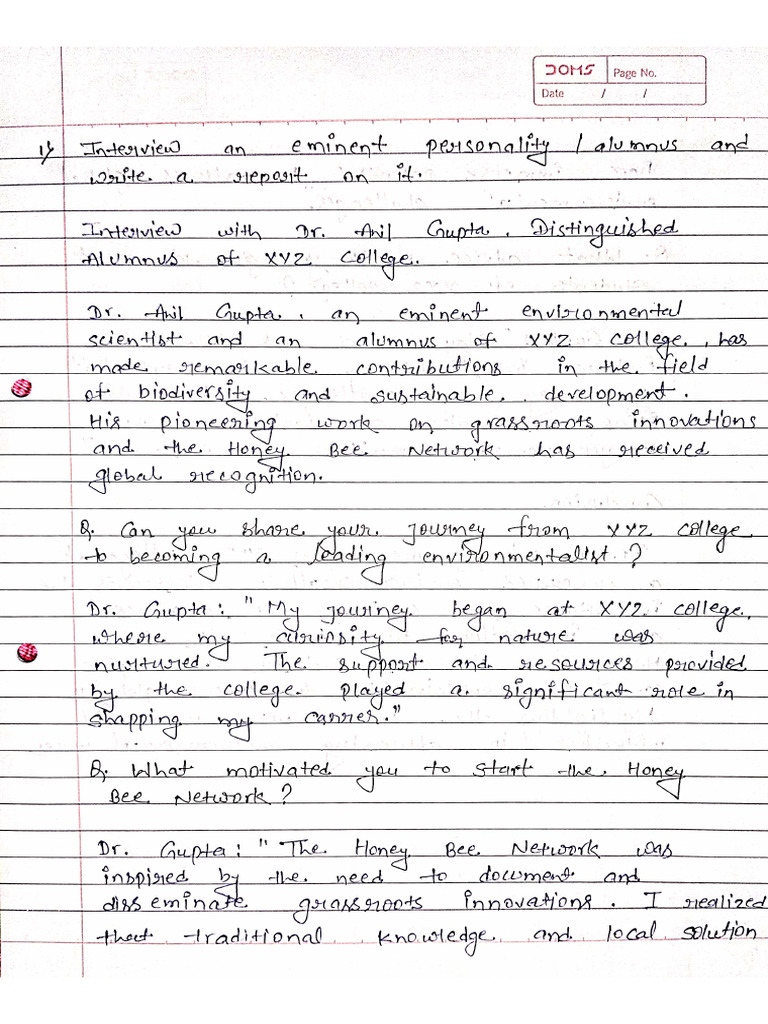 DOMS Page No.
Date / /
1) Interview an eminent personality / alumnus and
write a report on it.
Interview with Dr. Anil Gupta, Distinguished
Alumnus of XYZ College.
Dr. Anil Gupta, an eminent environmental
scientist and an alumnus of XYZ college, has
made remarkable contributions in the field
of biodiversity and sustainable development.
His pioneering work on grassroots innovations
and the Honey Bee Network has received
global recognition.
Q. Can you share your journey from XYZ college
to becoming a leading environmentalist?
Dr. Gupta: "My journey began at XYZ college,
where my curiosity for nature was
nurtured. The support and resources provided
by the college played a significant role in
shapping my carrer."
Q. What motivated you to start the Honey
Bee Network?
Dr. Gupta: "The Honey Bee Network was
inspired by the need to document and
disseminate grassroots innovations. I realized
that traditional knowledge and local solution